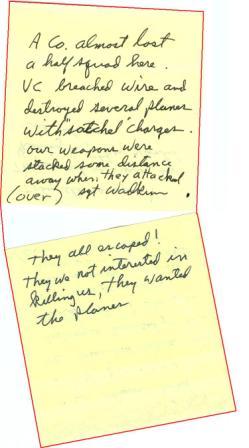 A Co. almost lost
a half squad here.
VC breached wire and
destroyed several planes
with "satchel" charges.
our weapons were
stacked some distance
away when they attacked
(over) sgt Wadkins.
they all escaped!
they we not interested in
killing us, they wanted
the planes